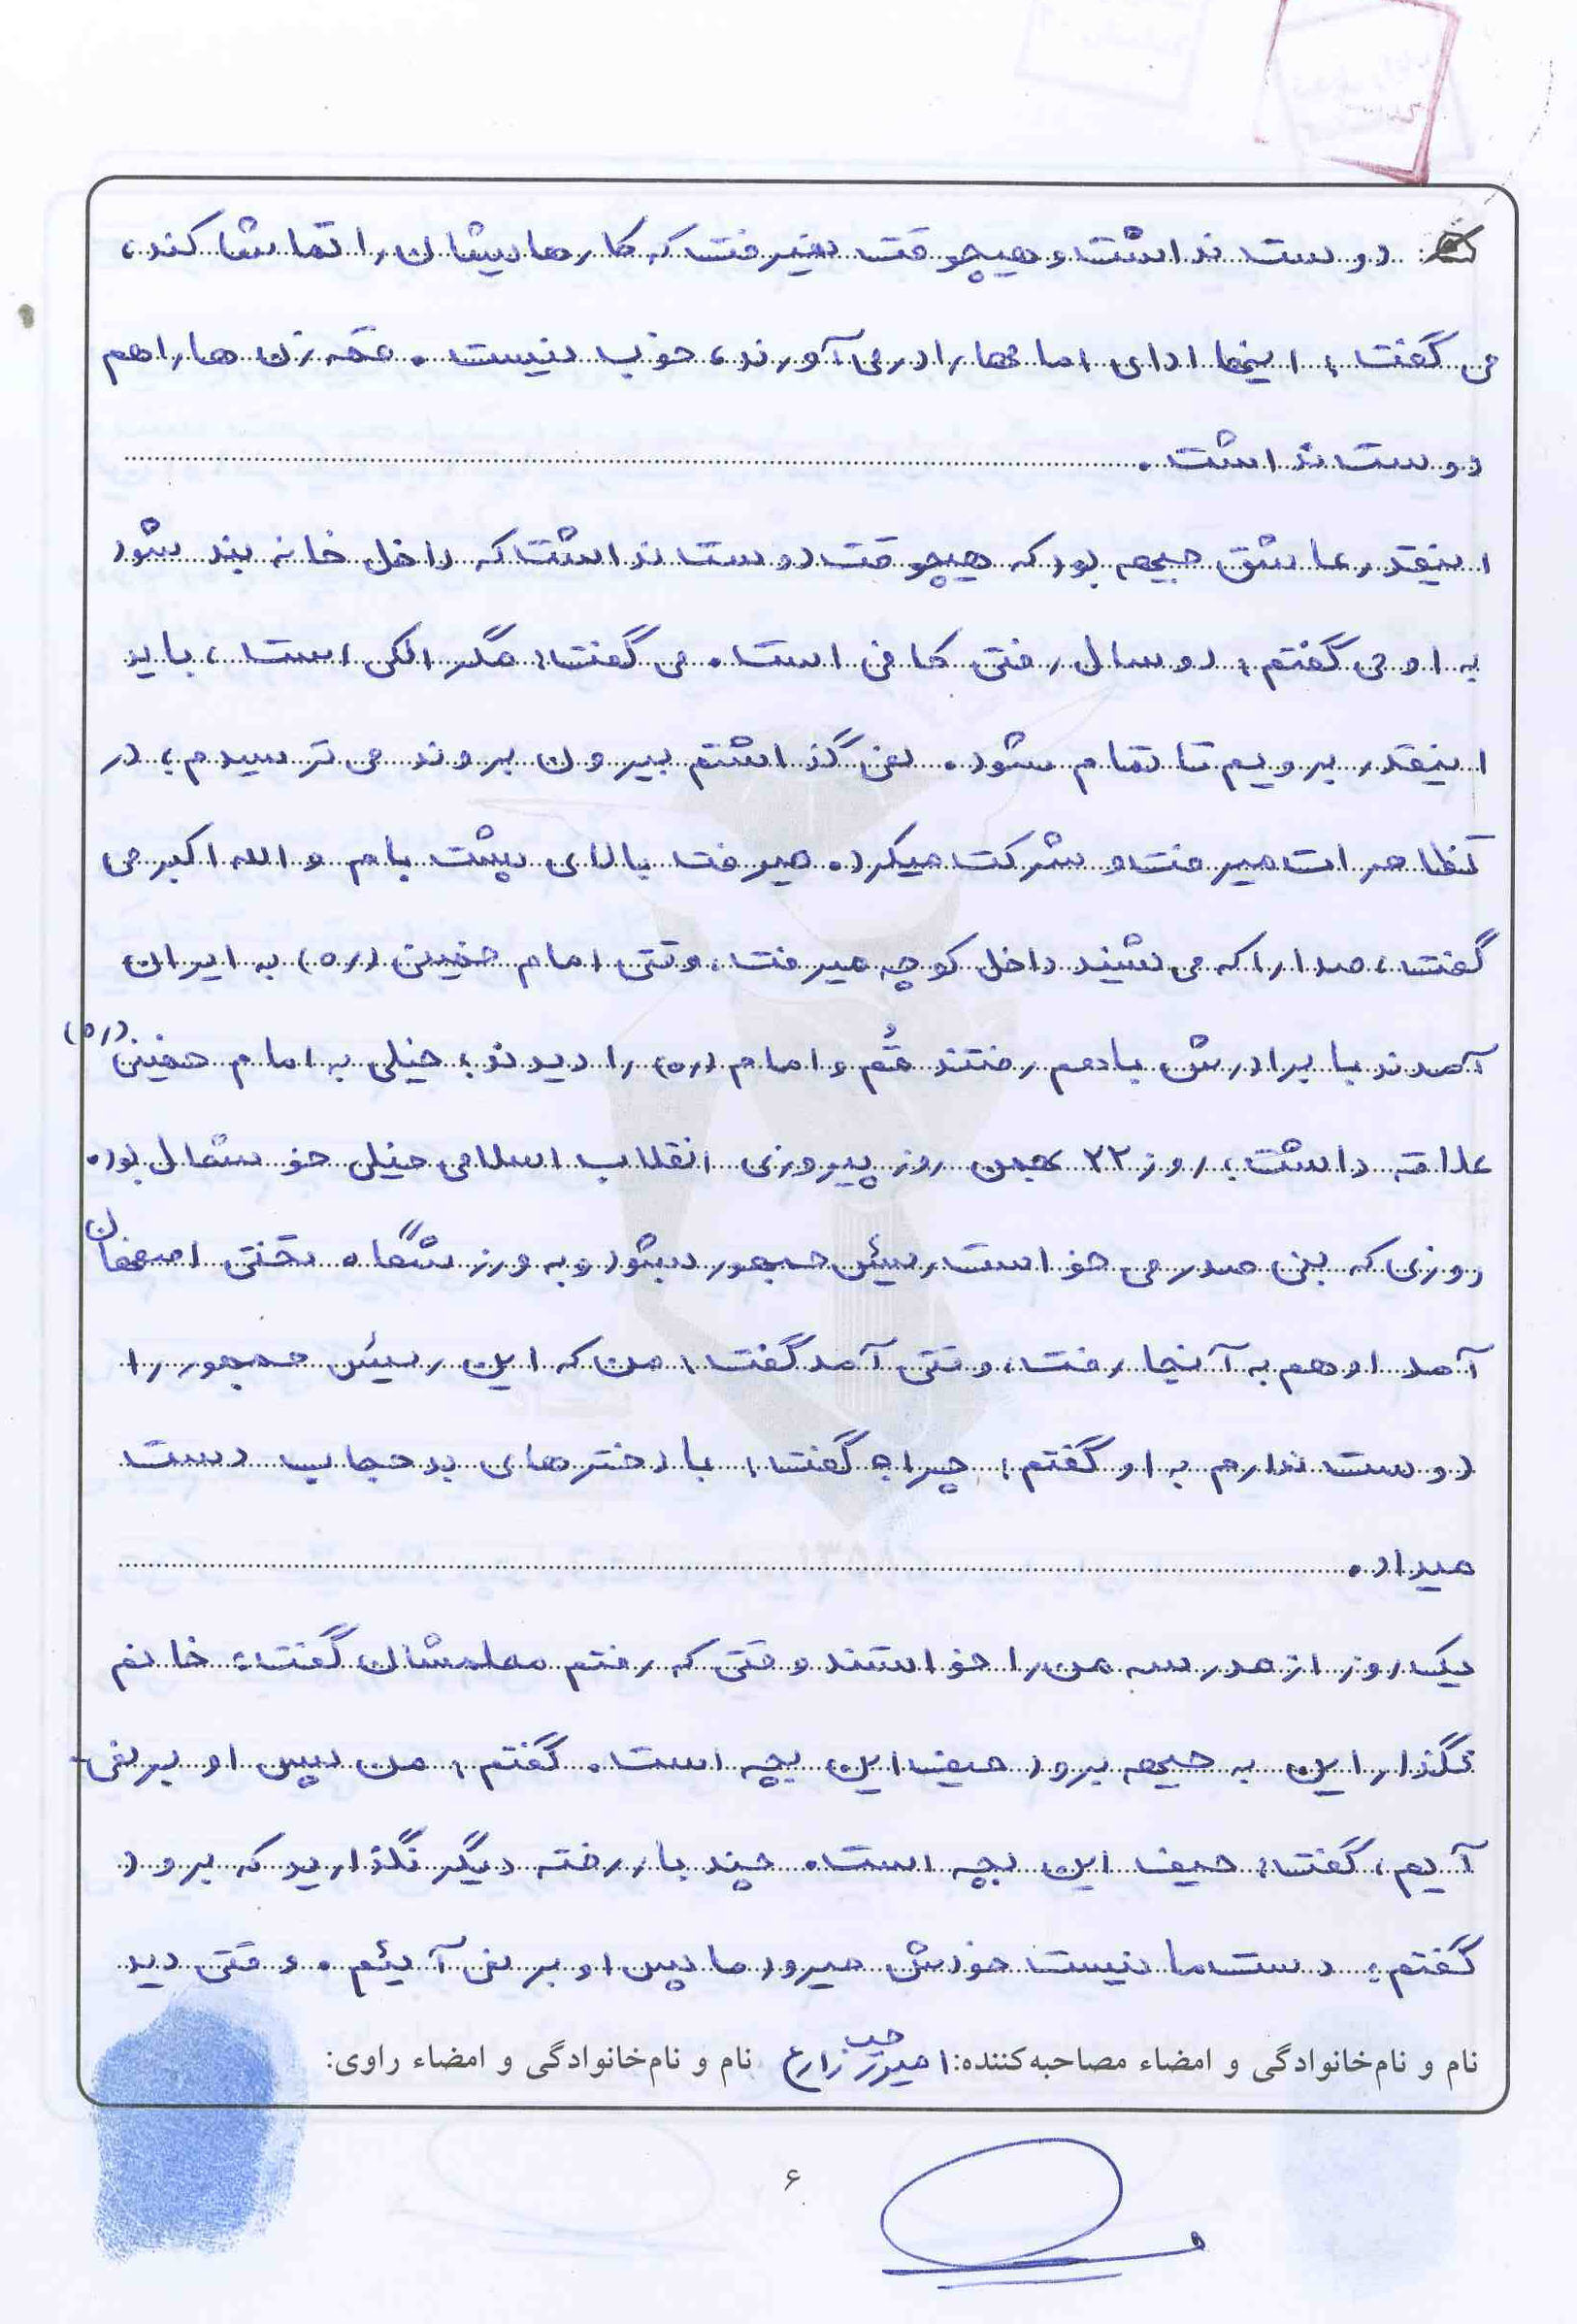 دوست نداشت و هیچوقت نمیرفت که کارهایشان را تماشا کند،
می گفت: اینها ادای امام‌ها را در می‌آورند، خوب نیست. قمه زن ها را هم
دوست نداشت.
اینقدر عاشق جبهه بود که هیچوقت دوست نداشت که داخل خانه بند شود
به او می گفتم: دو سال رفتی کافی است. می گفت: مگر الکی است، باید
اینقدر برویم تا تمام شود. نمی گذاشتم بیرون بروند می ترسیدم؛ در
تظاهرات میرفت و شرکت میکرد. میرفت بالای پشت بام و الله اکبر می
گفت، صدا را که می شنید داخل کوچه میرفت، وقتی امام خمینی (ره) به ایران
آمدند با برادرش باهم رفتند قُم و امام (ره) را دیدند، خیلی به امام خمینی (ره)
علاقه داشت، روز ۲۲ بهمن روز پیروزی انقلاب اسلامی خیلی خوشحال بود.
روزی که بنی صدر می خواست رئیس جمهور بشود و به ورزشگاه تختی اصفهان
آمد او هم به آنجا رفت، وقتی آمد گفت: من که این رئیس جمهور را
دوست ندارم به او گفتم: چرا؟ گفت: با دخترهای بد حجاب دست
میداد.
یک روز از مدرسه من را خواستند وقتی که رفتم معلمشان گفت: خانم
نگذار این به جبهه برود حیف این بچه است. گفتم: من پس او بر نمی
آیم، گفت: حیف این بچه است. چند بار رفته دیگر نگذارید که برود
گفتم: دست ما نیست خودش میرود ما پس او بر نمی آئیم. وقتی دید
نام و نام‌خانوادگی و امضاء مصاحبه‌کننده: امیررجب زارع نام و نام‌خانوادگی و امضاء راوی:
۶